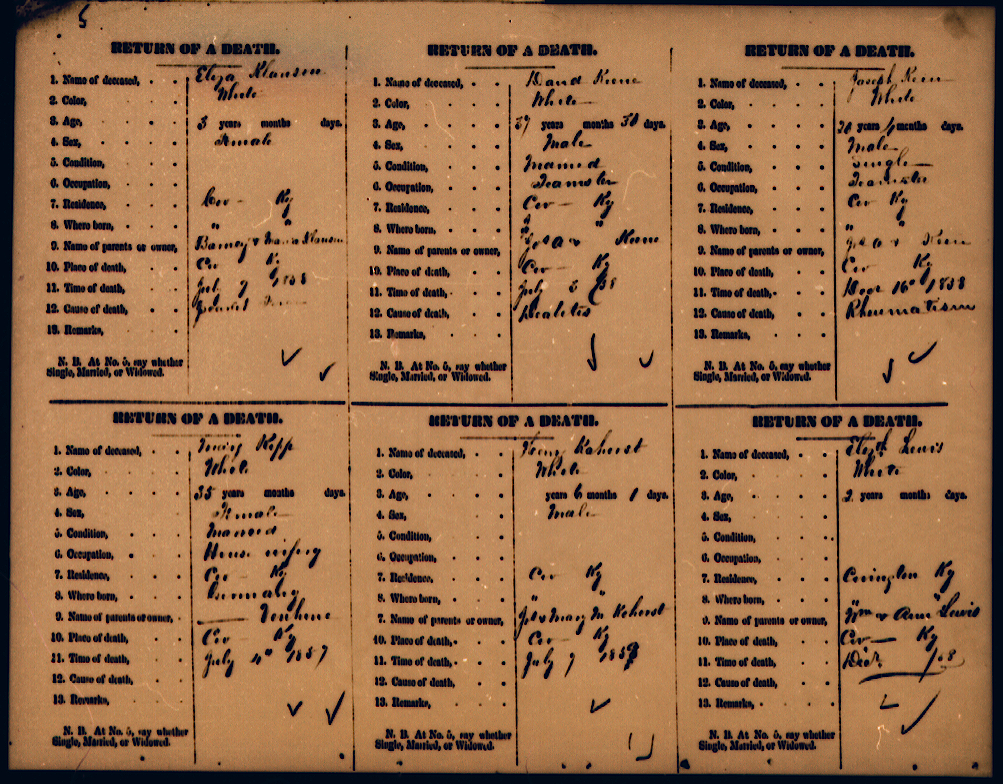 5
RETURN OF A DEATH.
1. Name of deceased, Eliza Klausen
2. Color, White
3. Age, 3 years months days.
4. Sex, Female
5. Condition,
6. Occupation,
7. Residence, Cov- Ky
8. Where born, " "
9. Name of parents or owner, Barney & Klausen
10. Place of death, Cov Ky
11. Time of death, July 7 1858
12. Cause of death,
13. Remarks,
N. B. At No. 5, say whether
Single, Married, or Widowed.
RETURN OF A DEATH.
1. Name of deceased, David Keene
2. Color, White
3. Age, 37 years months 30 days.
4. Sex, Male
5. Condition, Married
6. Occupation, Teamster
7. Residence, Cov- Ky
8. Where born, " "
9. Name of parents or owner, Jos a & Keene
10. Place of death, Cov- Ky
11. Time of death, July 5 58
12. Cause of death,
13. Remarks,
N. B. At No. 5, say whether
Single, Married, or Widowed.
RETURN OF A DEATH.
1. Name of deceased, Joseph Keen
2. Color, White
3. Age, years months days.
4. Sex, Male
5. Condition, Single
6. Occupation, Teamster
7. Residence, Cov Ky
8. Where born, " "
9. Name of parents or owner, Jos a &
10. Place of death, Cov Ky
11. Time of death, 16 1858
12. Cause of death, Rheumatism
13. Remarks,
N. B. At No. 5, say whether
Single, Married, or Widowed.
RETURN OF A DEATH.
1. Name of deceased, Mary Kopp
2. Color, White
3. Age, 35 years months days.
4. Sex, Female
5. Condition, Married
6. Occupation, House wifery
7. Residence, Cov- Ky
8. Where born, Germany
9. Name of parents or owner,
10. Place of death, Cov- Ky
11. Time of death, July 4th 1857
12. Cause of death,
13. Remarks,
N. B. At No. 5, say whether
Single, Married, or Widowed.
RETURN OF A DEATH.
1. Name of deceased, Henry Kaherst
2. Color, White
3. Age years 6 months 1 days.
4. Sex, Male
5. Condition,
6. Occupation,
7. Residence, Cov Ky
8. Where born, " "
7. Name of parents or owner, Jos & Mary M Keherst
10. Place of death, Cov- Ky
11. Time of death, July 7 1858
12. Cause of death,
13. Remarks,
N. B. At No. 5, say whether
Single, Married, or Widowed.
RETURN OF A DEATH.
1. Name of deceased, Elizth Lewis
2. Color, White
3. Age, 2 years months days.
4. Sex,
5. Condition,
6. Occupation,
7. Residence, Covington Ky
8. Where born, " "
9. Name of parents or owner, Wm & Ann Lewis
10. Place of death, Cov- Ky
11. Time of death, /58
12. Cause of death,
13. Remarks,
N. B. At No. 5, say whether
Single, Married, or Widowed.